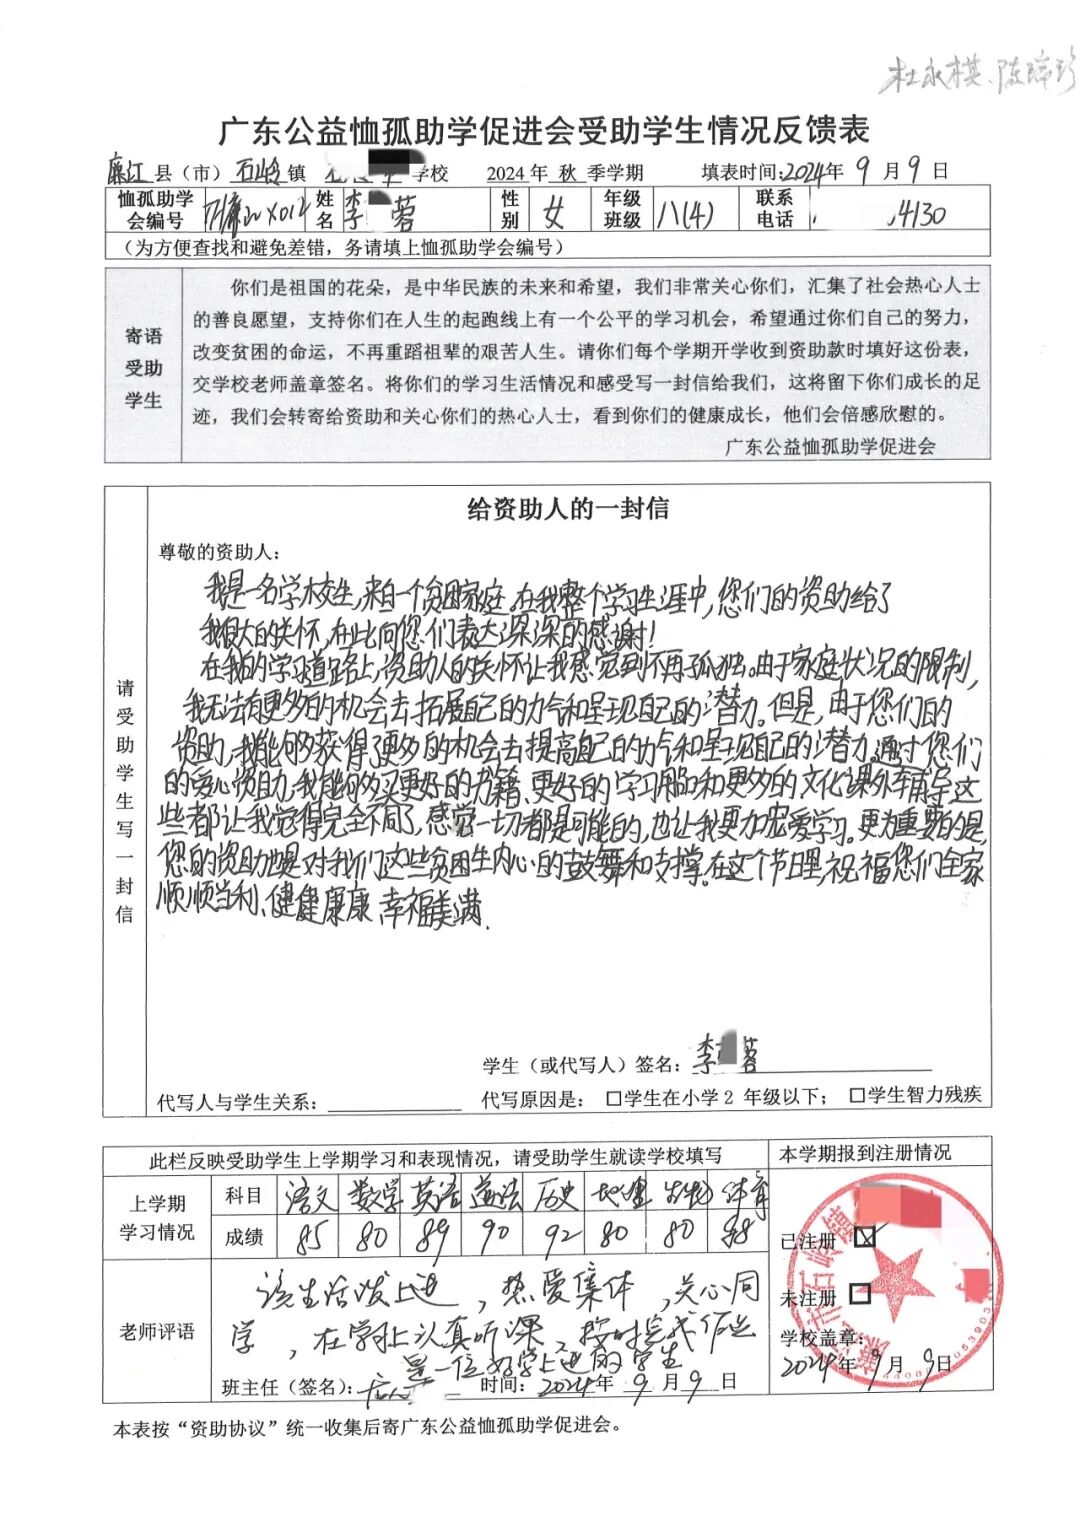 杜永棋、陈瑞珍
广东公益恤孤助学促进会受助学生情况反馈表
廉江县（市）石岭镇 学校 2024年 秋 季学期 填表时间:2024年 9 月 9 日
恤孤助学会编号 姓名 李 蓉 性别 女 年级班级 八(4) 联系电话 4130
（为方便查找和避免差错，务请填上恤孤助学会编号）
寄语受助学生
你们是祖国的花朵，是中华民族的未来和希望，我们非常关心你们，汇集了社会热心人士
的善良愿望，支持你们在人生的起跑线上有一个公平的学习机会，希望通过你们自己的努力，
改变贫困的命运，不再重蹈祖辈的艰苦人生。请你们每个学期开学收到资助款时填好这份表，
交学校老师盖章签名。将你们的学习生活情况和感受写一封信给我们，这将留下你们成长的足
迹，我们会转寄给资助和关心你们的热心人士，看到你们的健康成长，他们会倍感欣慰的。
广东公益恤孤助学促进会
请受助学生写一封信
给资助人的一封信
尊敬的资助人：
我是一名学校生，来自一个贫困家庭。在我整个学习生涯中，您们的资助给了
我很大的关怀，在此向您们表达深深的感谢！
在我的学习道路上，资助人的关怀让我感觉到不再孤独。由于家庭状况的限制，
我无法有更多的机会去拓展自己的力气和呈现自己的潜力。但是，由于您们的
资助，我能够获得了更多的机会去提高自己的力气和呈现自己的潜力。通过您们
的爱心资助，我能够买更好的书籍、更好的学习用品和更多的文化课外辅导，这
些都让我觉得完全不同了，感觉一切都是可能的，也让我更加宠爱学习。更为重要的是，
您的资助也是对我们这些贫困生内心的鼓舞和支撑。在这个节日里，祝福您们全家
顺顺当利、健健康康、幸福美满.
学生（或代写人）签名：李 蓉
代写人与学生关系： 代写原因是：□学生在小学2 年级以下； □学生智力残疾
此栏反映受助学生上学期学习和表现情况，请受助学生就读学校填写 本学期报到注册情况
上学期学习情况
科目 语文 数学 英语 道法 历史 地理 生物 体育
成绩 85 80 89 90 92 80 80 88
已注册 ☑
未注册 □
学校盖章：
2024年 9 月 9日
老师评语
该生活泼上进，热爱集体，关心同
学，在学习上认真听课，按时完成作业
是一位好学上进的学生
班主任（签名）： 时间：2024年 9 月 9 日
本表按“资助协议”统一收集后寄广东公益恤孤助学促进会。